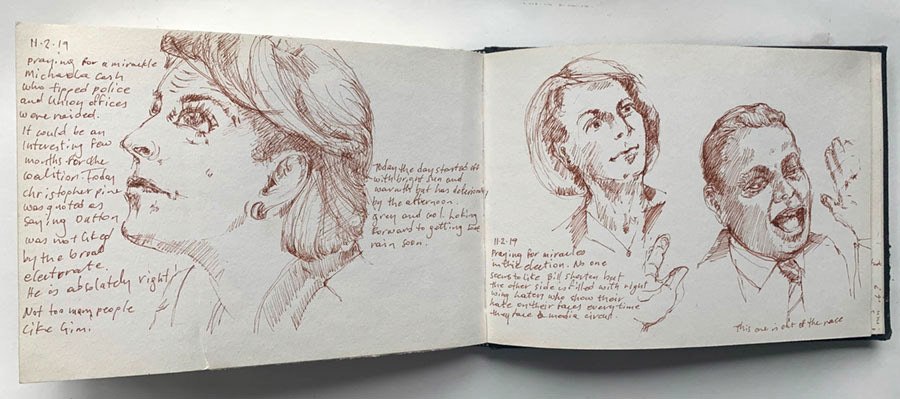 11·2·19
praying for a miracle
Michaela Cash
who tipped police
and Union offices
were raided.
It could be an
Interesting few
months for the
coalition. Today
christopher pine
was quoted as
saying Dutton
was not liked
by the broad
electorate.
He is absolutely right!
Not too many people
like him.
Today the day started off
with bright sun and
warmth but has deteriorated
by the afternoon.
grey and cool. Looking
forward to getting some
rain soon.
11·2·19
Praying for miracles
in the election. No one
seems to like Bill Shorten but
the other side is filled with right
wing haters who show their
hate on their faces every time
they face a media circus.
This one is out of the race